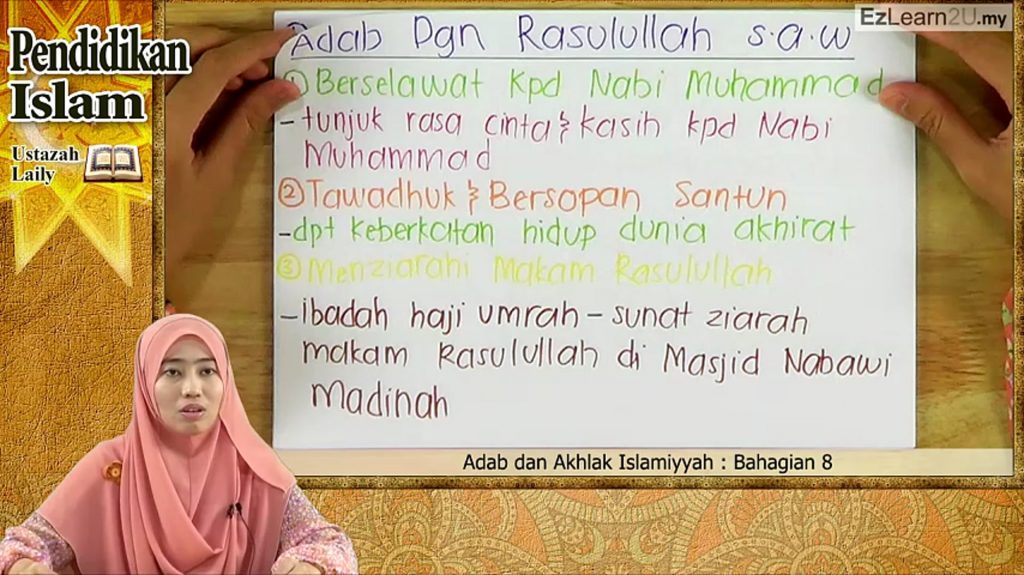 EzLearn2U.my
Pendidikan
Islam
Ustazah
Laily
Adab Dgn Rasulullah s.a.w
① Berselawat Kpd Nabi Muhammad
- tunjuk rasa cinta & kasih kpd Nabi
Muhammad
② Tawadhuk & Bersopan Santun
- dpt keberkatan hidup dunia akhirat
③ Menziarahi Makam Rasulullah
- ibadah haji umrah - sunat ziarah
makam Rasulullah di Masjid Nabawi
Madinah
Adab dan Akhlak Islamiyyah : Bahagian 8